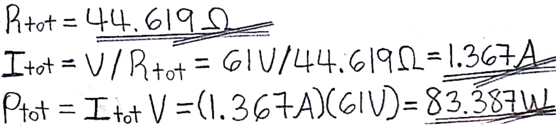 Rtot = 44.619Ω
Itot = V/Rtot = 61V/44.619Ω = 1.367A
Ptot = Itot V = (1.367A)(61V) = 83.387W